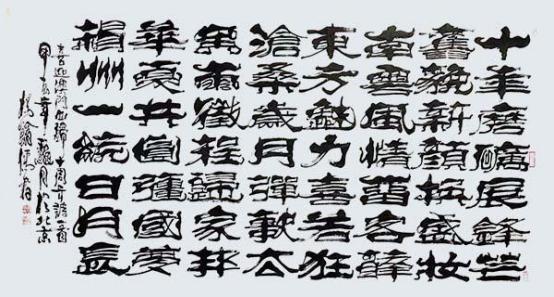 十年磨礪展鋒芒
舊貌新顏換盛妝
南雲風情留客醉
東方魅力喜若狂
滄桑歲月彈
萬徵程歸家邦
華夏共圓強國夢
州一統日月長
喜迎澳門回歸十周年詩一首
年月於北京